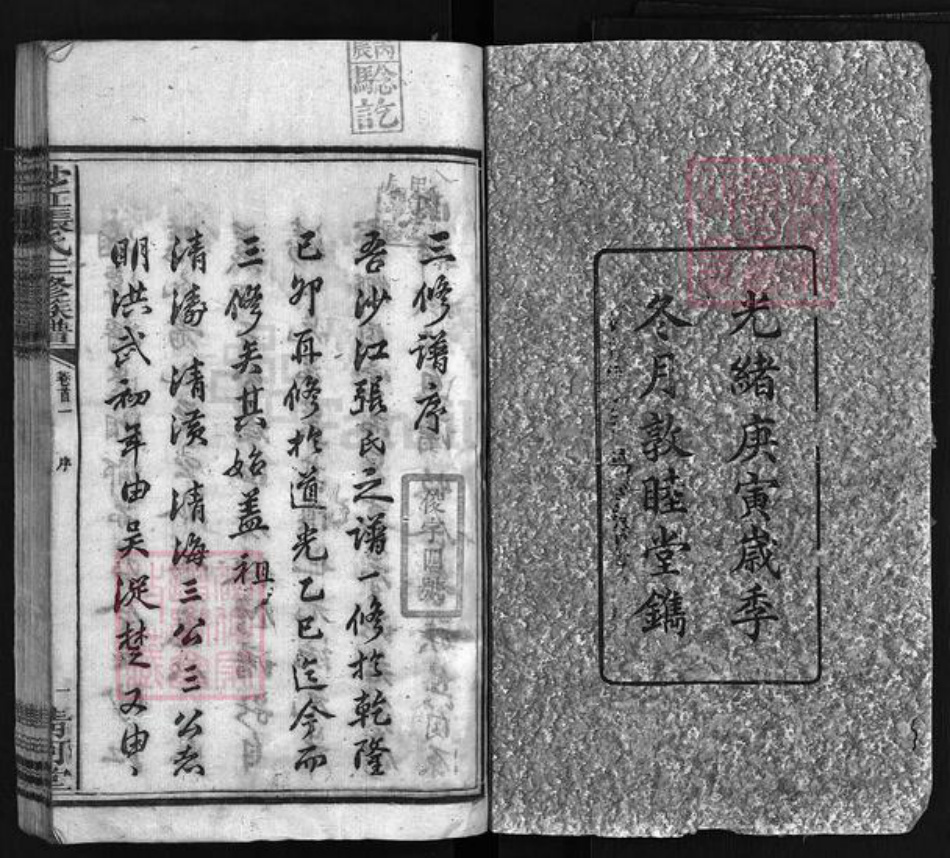 光緒庚寅歲季
冬月敦睦堂鐫
丙辰
騐訖
三修譜序
吾沙江張氏之譜一修於乾隆
己卯再修於道光乙巳迄今而
三修矣其始蓋祖
清濤清潢清海三公三公者
明洪武初年由吳從楚又由
沙江張氏三修族譜
卷首一
序
一
清河堂